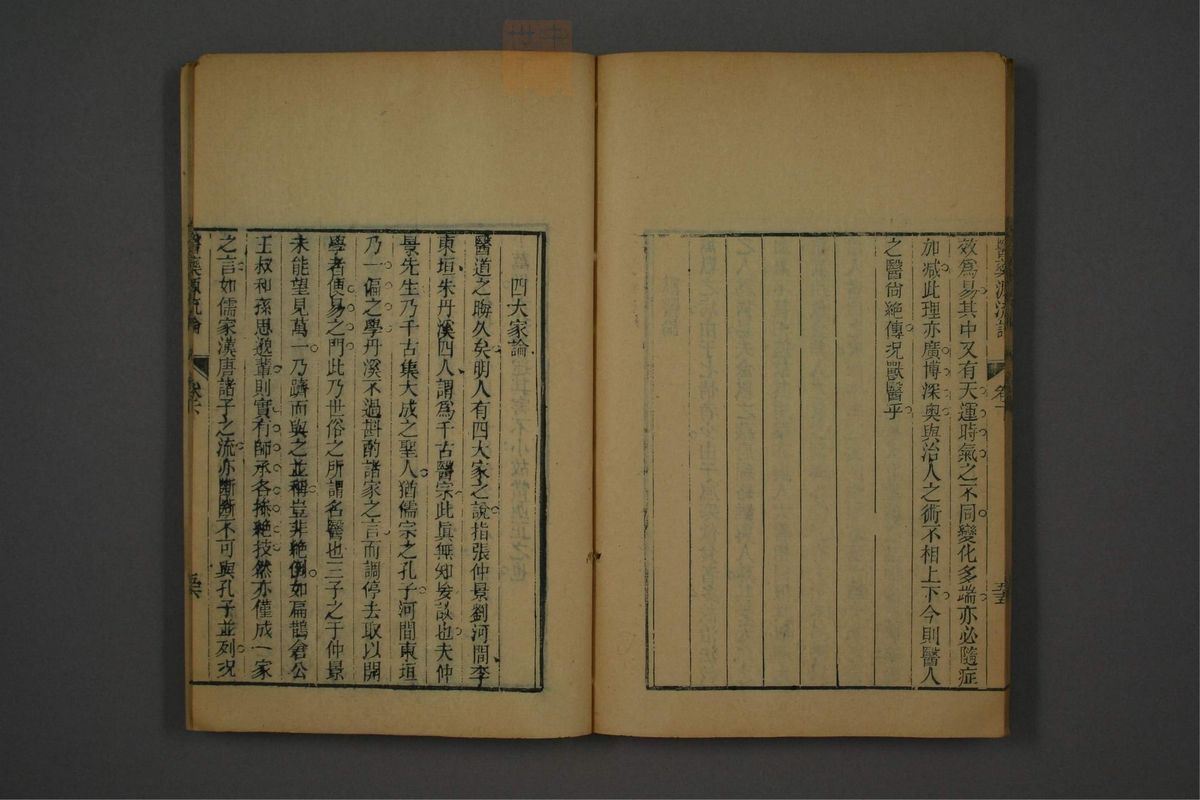 效爲易其中又有天運時氣之不同變化多端亦必隨症
加减此理亦廣博深奥與治人之術不相上下今則醫人
之醫尚絶傳况獸醫乎
四大家論
醫道之晦久矣明人有四大家之說指張仲景劉河間李
東垣朱丹溪四人謂爲千古醫宗此眞無知妄談也夫仲
景先生乃千古集大成之聖人猶儒宗之孔子河間東垣
乃一偏之學丹溪不過斟酌諸家之言而調停去取以開
學者便易之門此乃世俗之所謂名醫也三子之于仲景
未能望見萬一乃躋而與之並稱豈非絶倒如扁鵲倉公
王叔和孫思邈輩則實有師承各擅絶技然亦僅成一家
之言如儒家漢唐諸子之流亦斷斷不可與孔子並列况
醫藥源流論
卷下